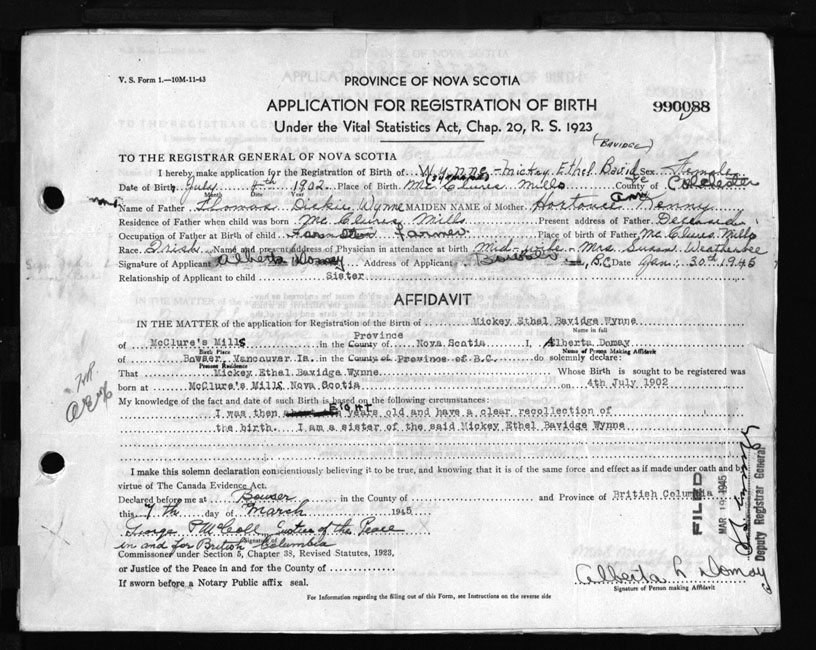 V. S. Form 1.—10M-11-43
PROVINCE OF NOVA SCOTIA
APPLICATION FOR REGISTRATION OF BIRTH
990088
Under the Vital Statistics Act, Chap. 20, R. S. 1923
(BAVIDGE)
TO THE REGISTRAR GENERAL OF NOVA SCOTIA
I hereby make application for the Registration of Birth of Wynne - Mickey Ethel Bavidge Sex Female
(Surname)
Date of Birth July 4th 1902 Place of Birth Mc Clures Mills County of Colchester
Name of Father Thomas Dickie Wynne MAIDEN NAME of Mother Kenny
Residence of Father when child was born Mc Clures Mills Present address of Father Deceased
Occupation of Father at Birth of child Farmer Place of birth of Father Mc Clures Mills
Race. Irish Name and present address of Physician in attendance at birth Mid-wife - Mrs. Susan Weatherbee
Signature of Applicant Alberta Domay Address of Applicant Bowser, B.C Date Jan: 30th 1945
Relationship of Applicant to child Sister
AFFIDAVIT
IN THE MATTER of the application for Registration of the Birth of Mickey Ethel Bavidge Wynne
Name in full
Province
of McClure's Mills in the County of Nova Scotia I, Alberta Domay
Birth Place Name of Person Making Affidavit
of Bowser, Vancouver Is. in the County of Province of B.C. do solemnly declare:
Present Residence
That Mickey Ethel Bavidge Wynne Whose Birth is sought to be registered was
born at McClure's Mills Nova Scotia on 4th July 1902
My knowledge of the fact and date of such Birth is based on the following circumstances:
I was then EIGHT years old and have a clear recollection of
the birth. I am a sister of the said Mickey Ethel Bavidge Wynne
I make this solemn declaration conscientiously believing it to be true, and knowing that it is of the same force and effect as if made under oath and by
virtue of The Canada Evidence Act.
Declared before me at Bowser in the County of and Province of British Columbia
this 7th day of March 1945
George P McColl Justice of the Peace
in and for British Columbia
Signature of
Commissioner under Section 5, Chapter 38, Revised Statutes, 1923,
or Justice of the Peace in and for the County of
If sworn before a Notary Public affix seal.
Alberta L Domay
Signature of Person making Affidavit
For Information regarding the filling out of this Form, see Instructions on the reverse side
FILED
MAR 19 1945
Deputy Registrar General